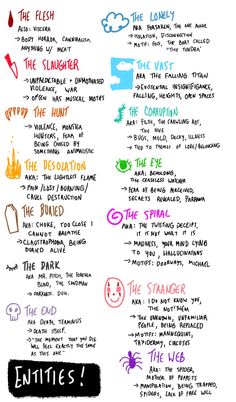 THE FLESH
ALSO: VISCERA
→ BODY HORROR, CANNIBALISM,
ANYTHING W/ MEAT
THE SLAUGHTER
→ UNPREDICTABLE + UNMOTIVATED
VIOLENCE, WAR
→ OFTEN HAS MUSICAL MOTIFS
THE HUNT
→ VIOLENCE, MONSTER
HUNTERS, FEAR OF
BEING CHASED BY
SOMETHING ANIMALISTIC
THE DESOLATION
AKA: THE LIGHTLESS FLAME
→ PAIN/LOSS/BURNING/
CRUEL DESTRUCTION
THE BURIED
AKA: CHOKE, TOO CLOSE I
CANNOT BREATHE
→ CLAUSTROPHOBIA, BEING
BURIED ALIVE
THE DARK
AKA: MR. PITCH, THE FOREVER
BLIND, THE SANDMAN
→ DARKNESS. DUH.
THE END
AKA: DEATH, TERMINUS
→ DEATH ITSELF.
→ "THE MOMENT THAT YOU DIE
WILL FEEL EXACTLY THE SAME
AS THIS ONE"
ENTITIES!
THE LONELY
AKA: FORSAKEN, THE ONE ALONE
→ ISOLATION, DISCONNECTION
→ MOTIF: FOG, THE BOAT CALLED
"THE TUNDRA"
THE VAST
AKA THE FALLING TITAN
→ EXISTENTIAL INSIGNIFIGANCE,
FALLING, HEIGHTS, OPEN SPACES
THE CORRUPTION
AKA: FILTH, THE CRAWLING ROT,
THE HIVE
→ BUGS, MOLD, DECAY, ILLNESS
→ TIED TO THEMES OF LOVE/BELONGING
THE EYE
AKA: BEHOLDING,
THE CEASELESS WATCHER
→ FEAR OF BEING WATCHED,
SECRETS REVEALED, PARANOIA
THE SPIRAL
AKA: THE TWISTING DECEIT,
IT IS NOT WHAT IT IS
→ MADNESS, YOUR MIND LYING
TO YOU, HALLUCINATIONS
→ MOTIFS: DOORWAYS, MICHAEL
THE STRANGER
AKA: I DO NOT KNOW YOU,
THE NOT!THEM
→ THE UNKNOWN, UNFAMILIAR
PEOPLE, BEING REPLACED
→ MOTIFS: MANNEQUINS,
TAXIDERMY, CIRCUSES
THE WEB
AKA: THE SPIDER,
MOTHER OF PUPPETS
→ MANIPULATION, BEING TRAPPED,
SPIDERS, LACK OF FREE WILL